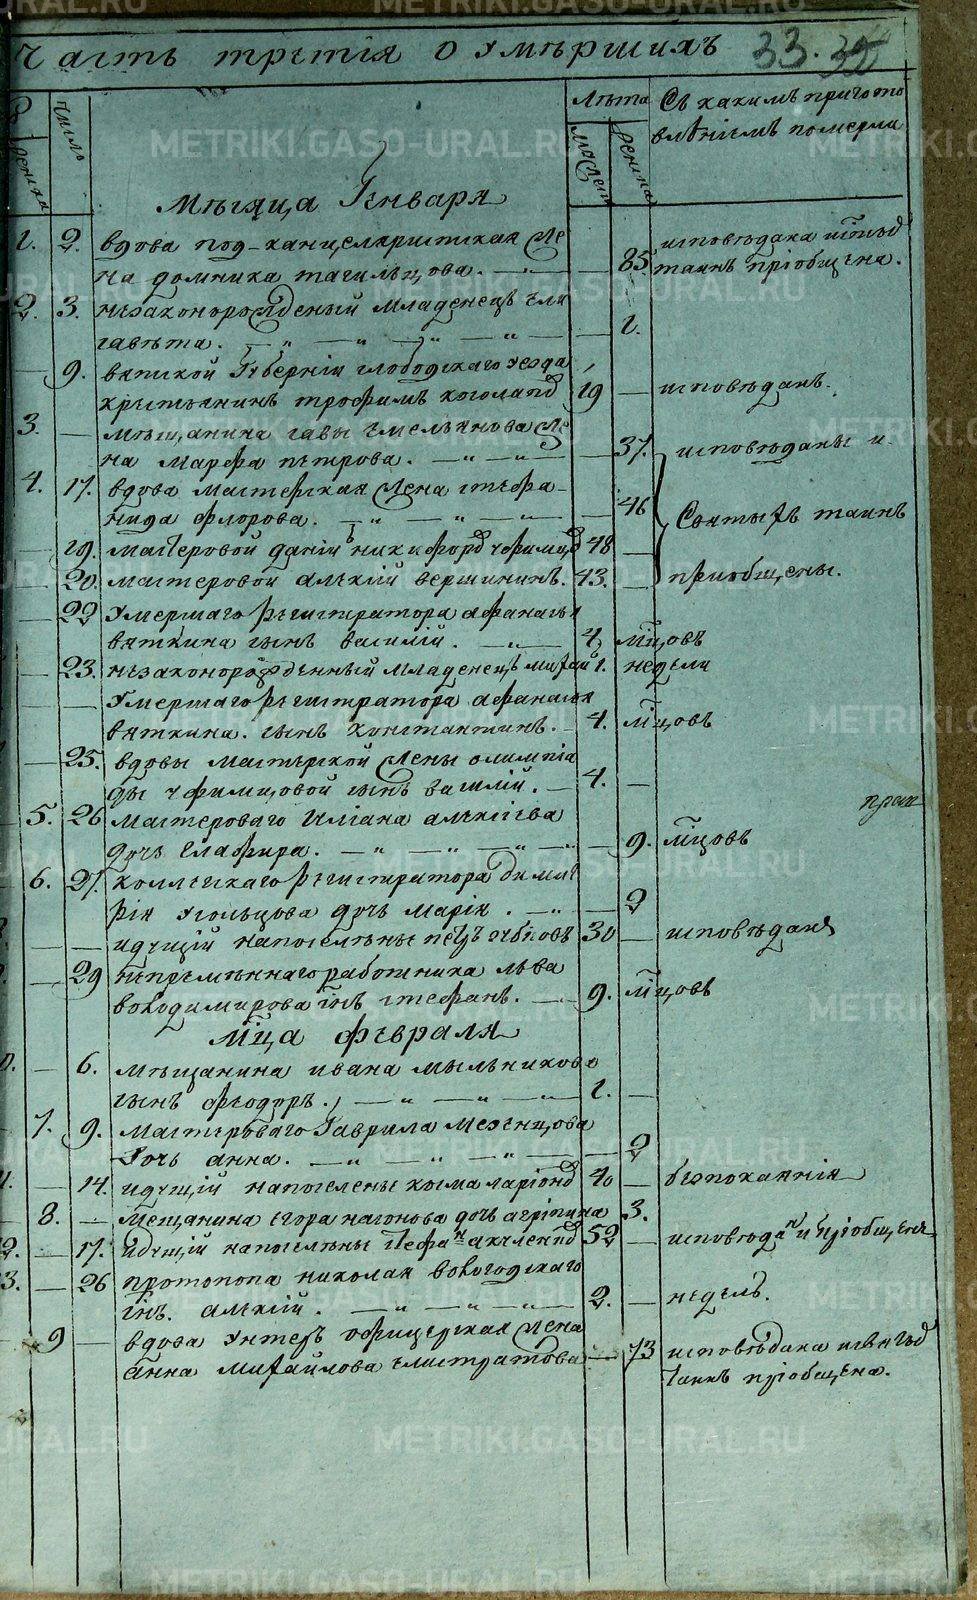 Часть третія о умѣршихъ 33.
число
Лѣта
Съ какимъ приготовлѣніемъ померли
женска
Мѣсяца Генваря
1. 2. вдова под-канцеляристская же
на домника тагильцова. — " — 85 исповѣдана
таинъ пріобщена.
2. 3. незаконорожденый младенецъ ели
савѣта. — " — " — " — " — 1.
— 9. вятской Губерніи слободскаго уезда
крестьянинъ трофимъ 19 — исповѣданъ.
3. — мѣщанина савы емельянова же
на марфа петрова. — " — " — 37. исповѣданы и
4. 17. вдова мастерская жена стефа-
нида флорова. — " — " — " — 46 Святыхъ таинъ
— 19. мастеровой даніи никифоръ 48 —
— 20. мастеровой алѣксій вершининъ. 43. — приобщены.
— 22 умершаго регистратора афанасья
вяткина сынъ василій. — " — 4 мцовъ
— 23. незаконорожденный младенецъ 1. недели
— умершаго регистратора афанасья
вяткина. сынъ константинъ. — 4. мцовъ
— 25. вдовы мастерской жены олимпіа
ды сынъ василій. — 4. —
5. 26 мастероваго алѣксіева
дочь Глафира. — " — " — " — " — 9. мцовъ
6. 27. коллежскаго регистратора димит
рія угольцова дочь марія. — " — 2
— — идущій напоселенье петръ 30 — исповѣданъ
— 29 непремѣннаго работника льва
володимирова снъ стефанъ. — 9. мцовъ
Мца февраля
— 6. мѣщанина ивана мыльникова
сынъ феодоръ. — " — " — " — 1. —
7. 9. мастероваго Гаврила мезенцова
дочь анна. — " — " — " — 2
— 14. идущій напоселенье косма ларіонъ 40 — безпокаянія
8. — мещанина егора нагонова дочь агріпина 3.
— 17. идущій напоселенье стефанъ 52 — исповѣданъ и пріобщенъ
— 26 протопопа николая вологодскаго
снъ. алѣксій. — " — " — " — 2. — недель.
9 — вдова унтеръ офицерская жена
анна михайлова елистратова — 73 исповѣдана
таинъ пріобщена.
METRIKI.GASO-URAL.RU